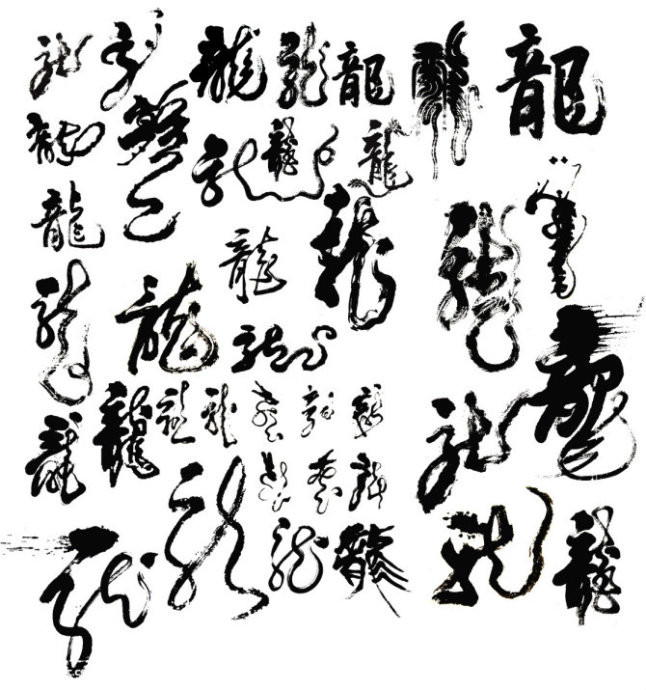 龍龍龍龍龍龍龍
龍龍龍龍龍龍
龍龍龍龍
龍龍龍龍
龍龍龍龍龍龍龍龍
龍龍龍
龍龍龍龍龍龍